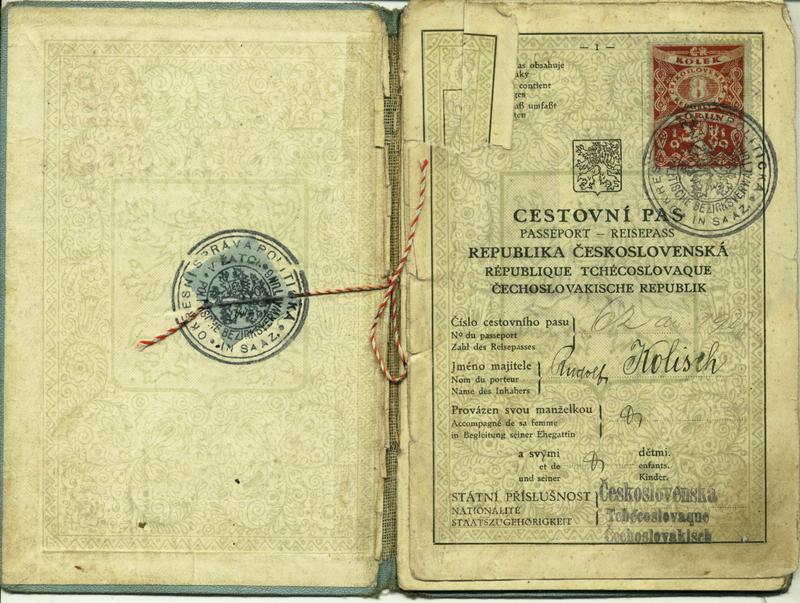 OKRESNÍ SPRÁVA POLITICKÁ
V ŽATCI
POLITISCHE BEZIRKSVERWALTUNG
IN SAAZ.
— 1 —
as obsahuje
contient
ges
aß umfaßt
ten
CESTOVNÍ PAS
PASSEPORT – REISEPASS
REPUBLIKA ČESKOSLOVENSKÁ
RÉPUBLIQUE TCHÉCOSLOVAQUE
ČECHOSLOVAKISCHE REPUBLIK
Číslo cestovního pasu
Nº du passeport
Zahl des Reisepasses
Jméno majitele
Nom du porteur
Name des Inhabers
Rudolf Kolisch
Provázen svou manželkou
Accompagné de sa femme
in Begleitung seiner Ehegattin
a svými dětmi.
et de enfants.
und seiner Kinder.
STÁTNÍ PŘÍSLUŠNOST
NATIONALITÉ
STAATSZUGEHÖRIGKEIT
Československá
Tchécoslovaque
Čechoslovakisch
KOLEK
8
KORUN
1919
OKRESNÍ POLITICKÁ
POLITISCHE BEZIRKSVERWALTUNG
IN SAAZ.